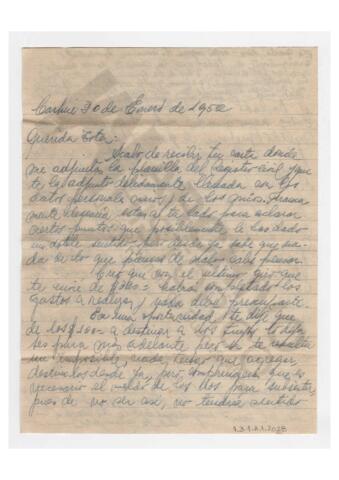 Carhue 30 de Enero de 1950
Querida Ester:
Acabo de recibir tu carta donde
me adjunta la planilla del registro civil y que
te la adjunto debidamente llenada con los
datos personales míos y de los
mente desearía estar a tu lado para aclarar
ciertos puntos que posiblemente le has dado
un doble sentido, pues desde ya sabe que na-
da de lo que piensas de malo cabe pensar.
Creo que con el último giro que
te envié de habrás completado los
gastos a realizar, y nada debe preocuparte.
En una oportunidad te dije que
de los $ 100.- a destinar a los tuyos lo deja-
ses para más adelante pero si te resulta
un imposible, nada tengo que agregar,
destínalos desde ya, pero comprendeme que es
necesario el sueldo de los dos para subsistir,
pues de no ser así, no tendría sentido
1.3.1.A.1.2028